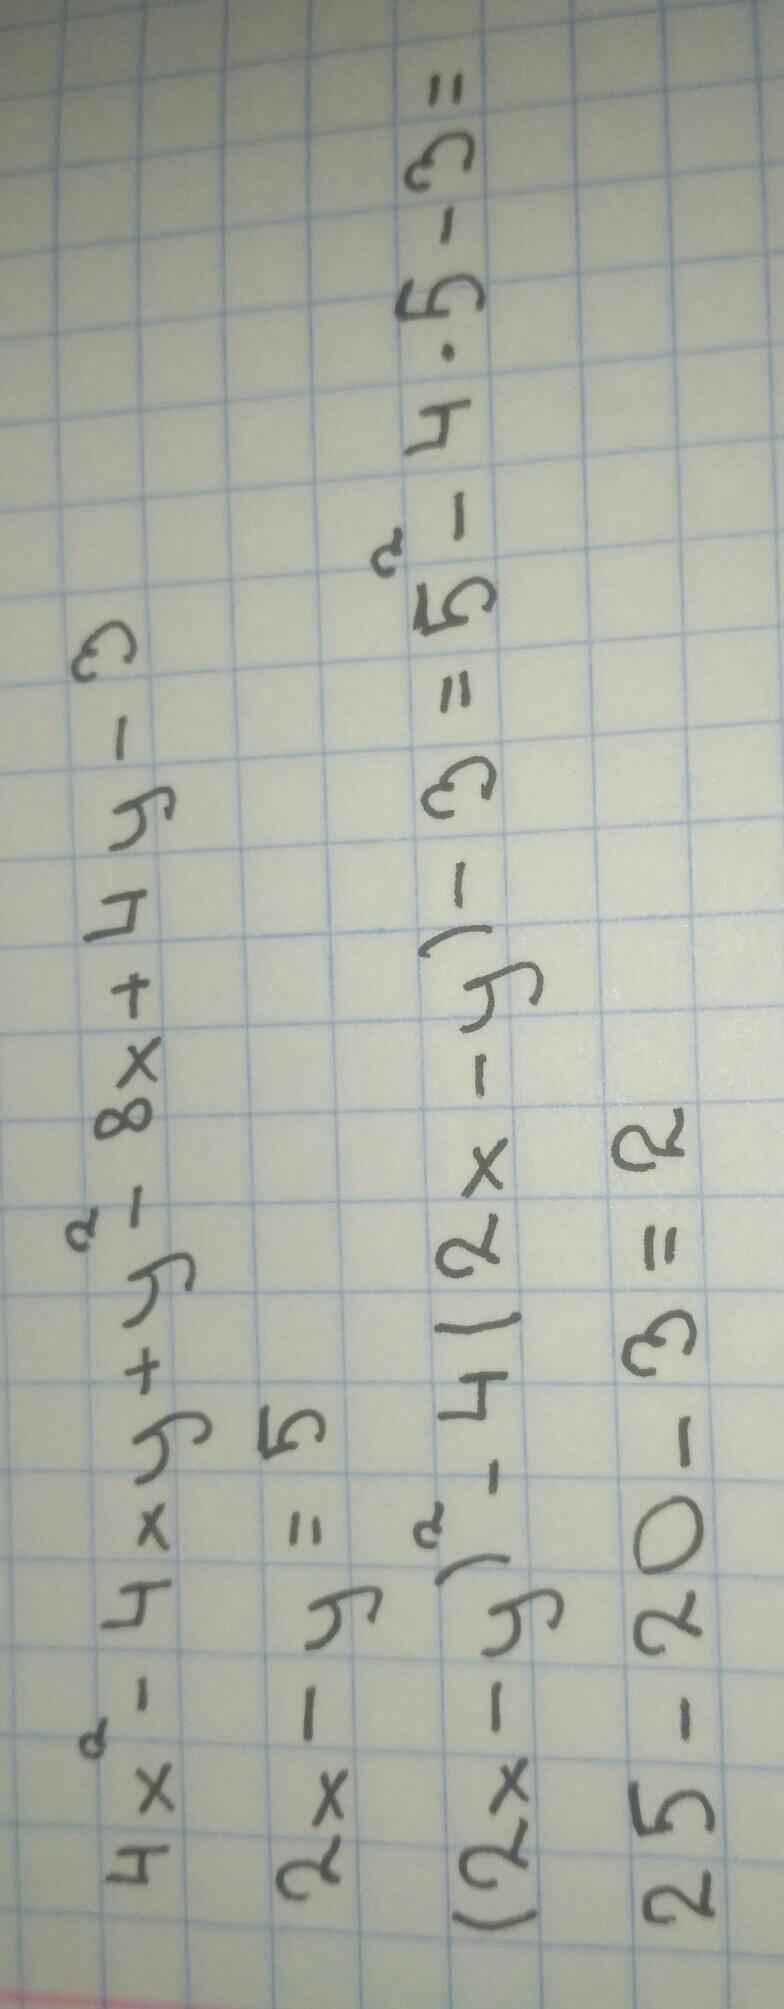 4x² - 4xy + y² - 8x + 4y - 3
2x - y = 5
(2x - y)² - 4(2x - y) - 3 = 5² - 4 · 5 - 3 =
25 - 20 - 3 = 2